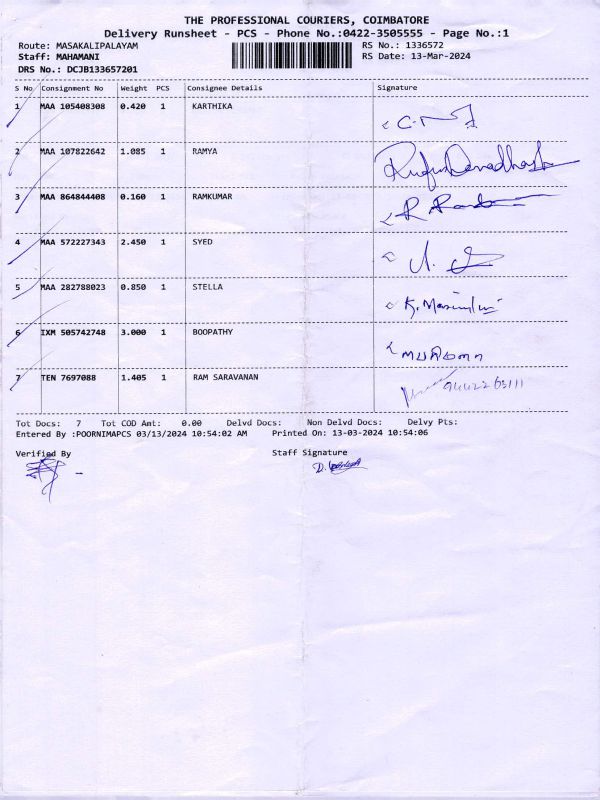 THE PROFESSIONAL COURIERS, COIMBATORE
Delivery Runsheet - PCS - Phone No.:0422-3505555 - Page No.:1
Route: MASAKALIPALAYAM RS No.: 1336572
Staff: MAHAMANI RS Date: 13-Mar-2024
DRS No.: DCJB133657201
S No Consignment No Weight PCS Consignee Details Signature
1 MAA 105408308 0.420 1 KARTHIKA
2 MAA 107822642 1.085 1 RAMYA
3 MAA 864844408 0.160 1 RAMKUMAR
4 MAA 572227343 2.450 1 SYED
5 MAA 282788023 0.850 1 STELLA
6 IXM 505742748 3.000 1 BOOPATHY
7 TEN 7697088 1.405 1 RAM SARAVANAN
Tot Docs: 7 Tot COD Amt: 0.00 Delvd Docs: Non Delvd Docs: Delvy Pts:
Entered By :POORNIMAPCS 03/13/2024 10:54:02 AM Printed On: 13-03-2024 10:54:06
Verified By Staff Signature